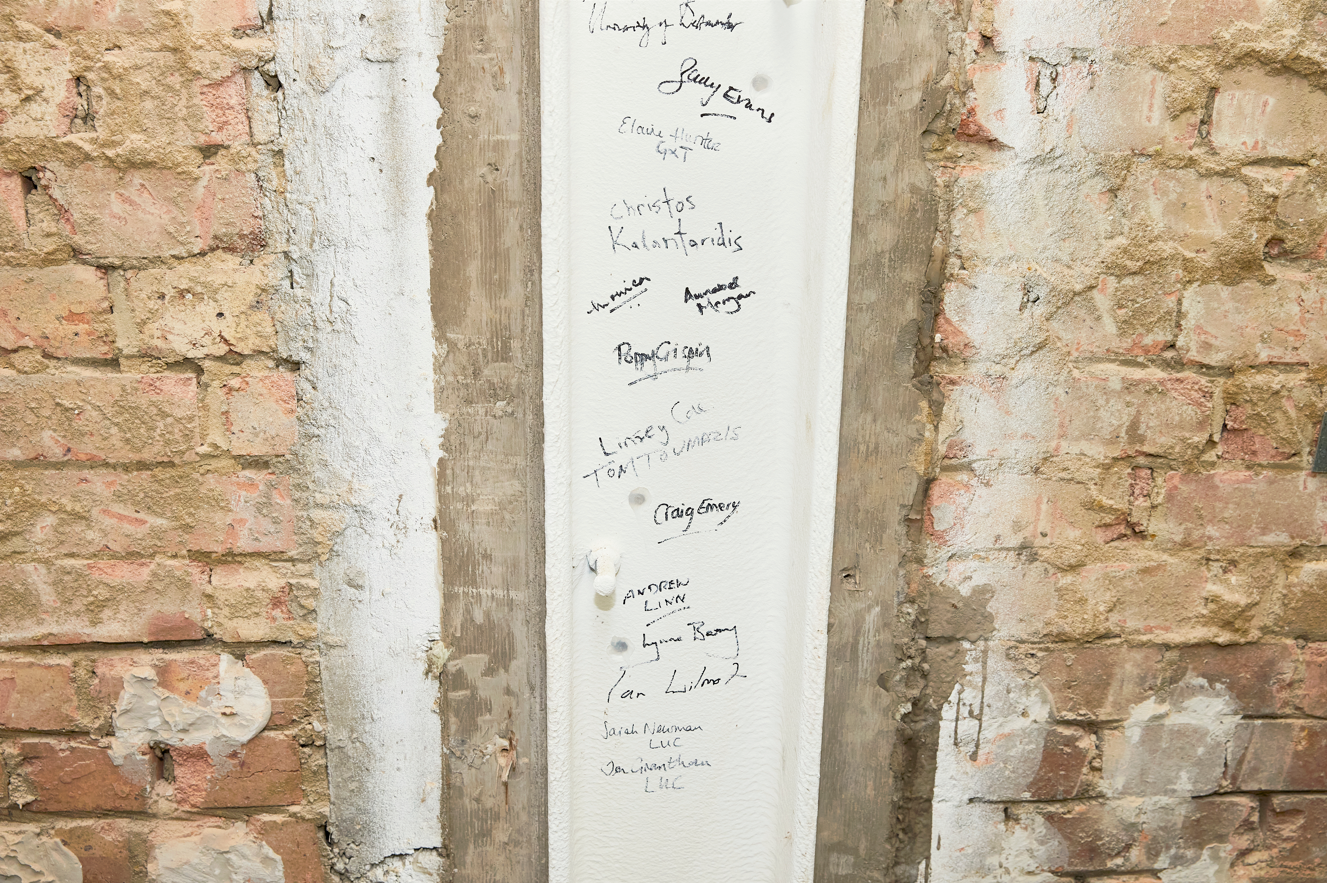 University of Westminster
Evans
Elaine
GXT
Christos
Kalantaridis
Monica
Annabel
Morgan
Poppy Crispin
Linsey Cole
TOM TOUMAZIS
Craig Emery
ANDREW
LINN
Lynne Barry
Ian Wilmot
Sarah Newman
LUC
Jon Grantham
LUC